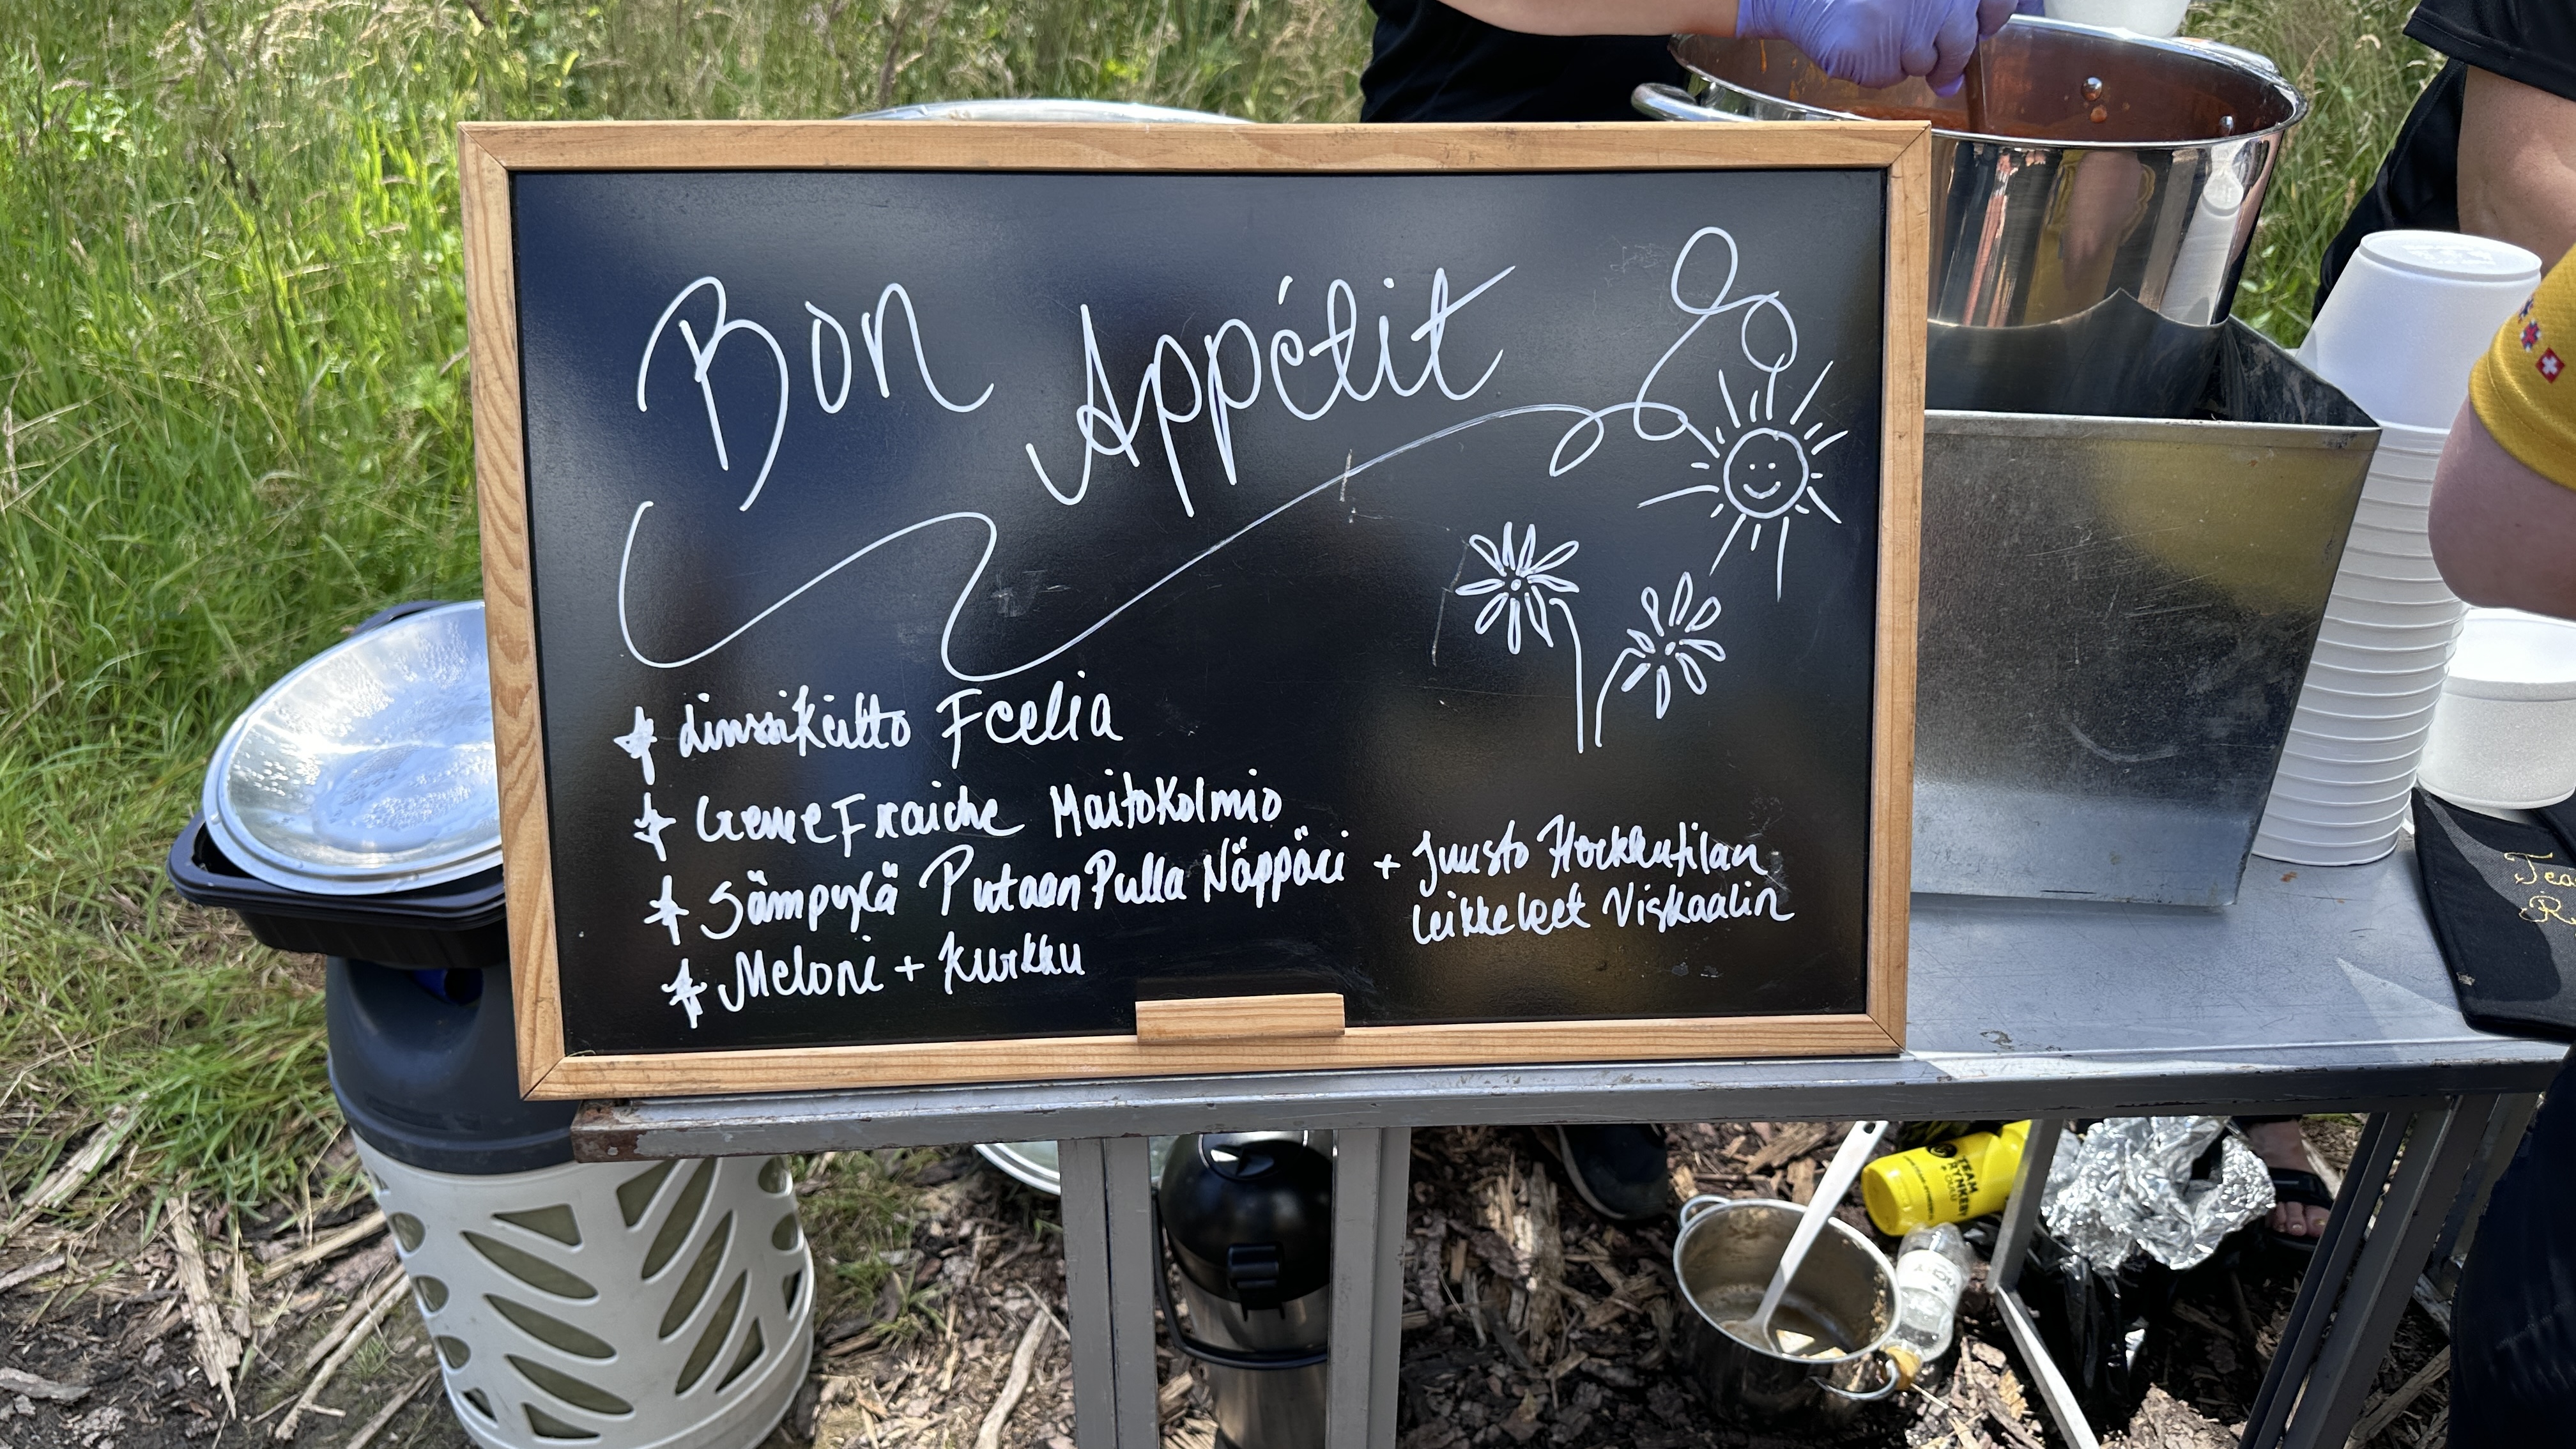 Bon Appétit
* Linssikeitto Feelia
* Creme Fraiche Maitokolmio
* Sämpylä Putaan Pulla Näppäri + Juusto Herkkutilan
leikkeleet Viskaalin
* Meloni + Kurkku
TEAM
RYNKEBY